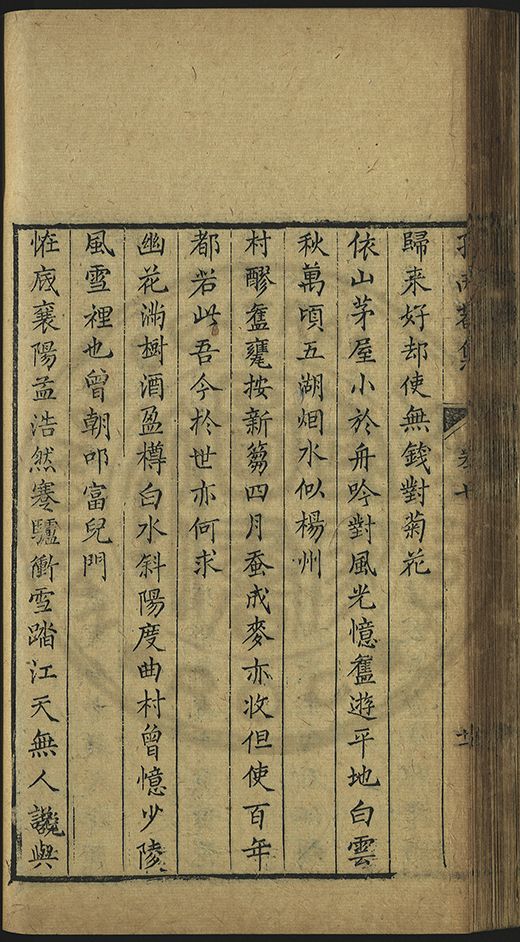 歸来好却使無錢對菊花
依山茅屋小於舟吟對風光憶舊遊平地白雲
秋萬頃五湖烟水似楊州
村醪舊甕按新蒭四月蚕成麥亦收但使百年
都若此吾今於世亦何求
幽花滿樹酒盈樽白水斜陽度曲村曾憶少陵
風雪裡也曾朝叩富兒門
怪底襄陽孟浩然蹇驢衝雪踏江天無人讒與